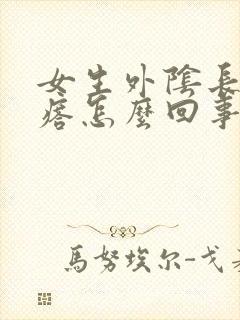 女生外陰長
痞怎麼回事
馬努埃尔-戈